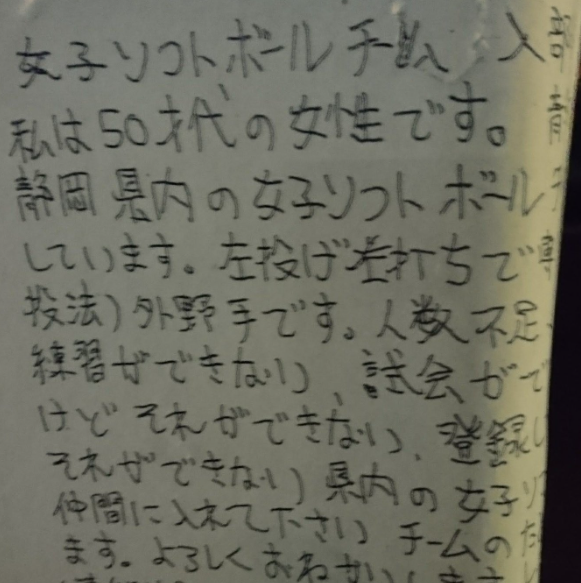 女子ソフトボールチーム 入部
私は50才代の女性です。
静岡県内の女子ソフトボール
しています。左投げ左打ちで
投法)外野手です。人数不足、
練習ができない、試会がで
けどそれができない、登録し
それができない)県内の女子ソフ
仲間に入れて下さい チームの
ます。よろしくおねがいします